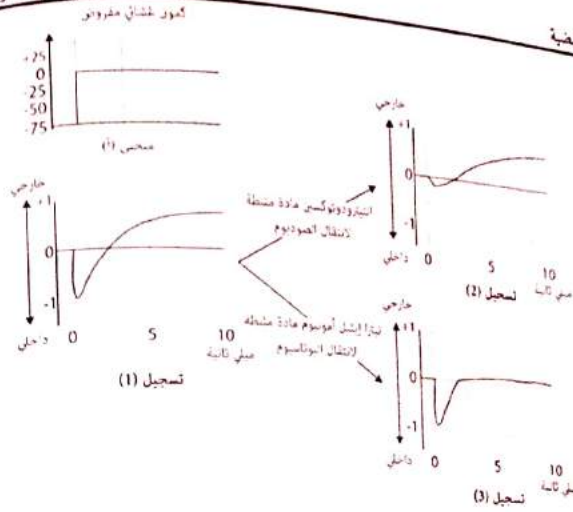 كمون غشائي مفروض
+25
0
-25
-50
-75
منحنى (أ)
خارجي
+1
0
-1
داخلي
0 5 10
ميلي ثانية
تسجيل (1)
مادة مثبطة
لانتقال الصوديوم
مادة مثبطة
لانتقال البوتاسيوم
خارجي
+1
0
-1
داخلي
0 5 10
ميلي ثانية
تسجيل (2)
خارجي
+1
0
-1
داخلي
0 5 10
ميلي ثانية
تسجيل (3)